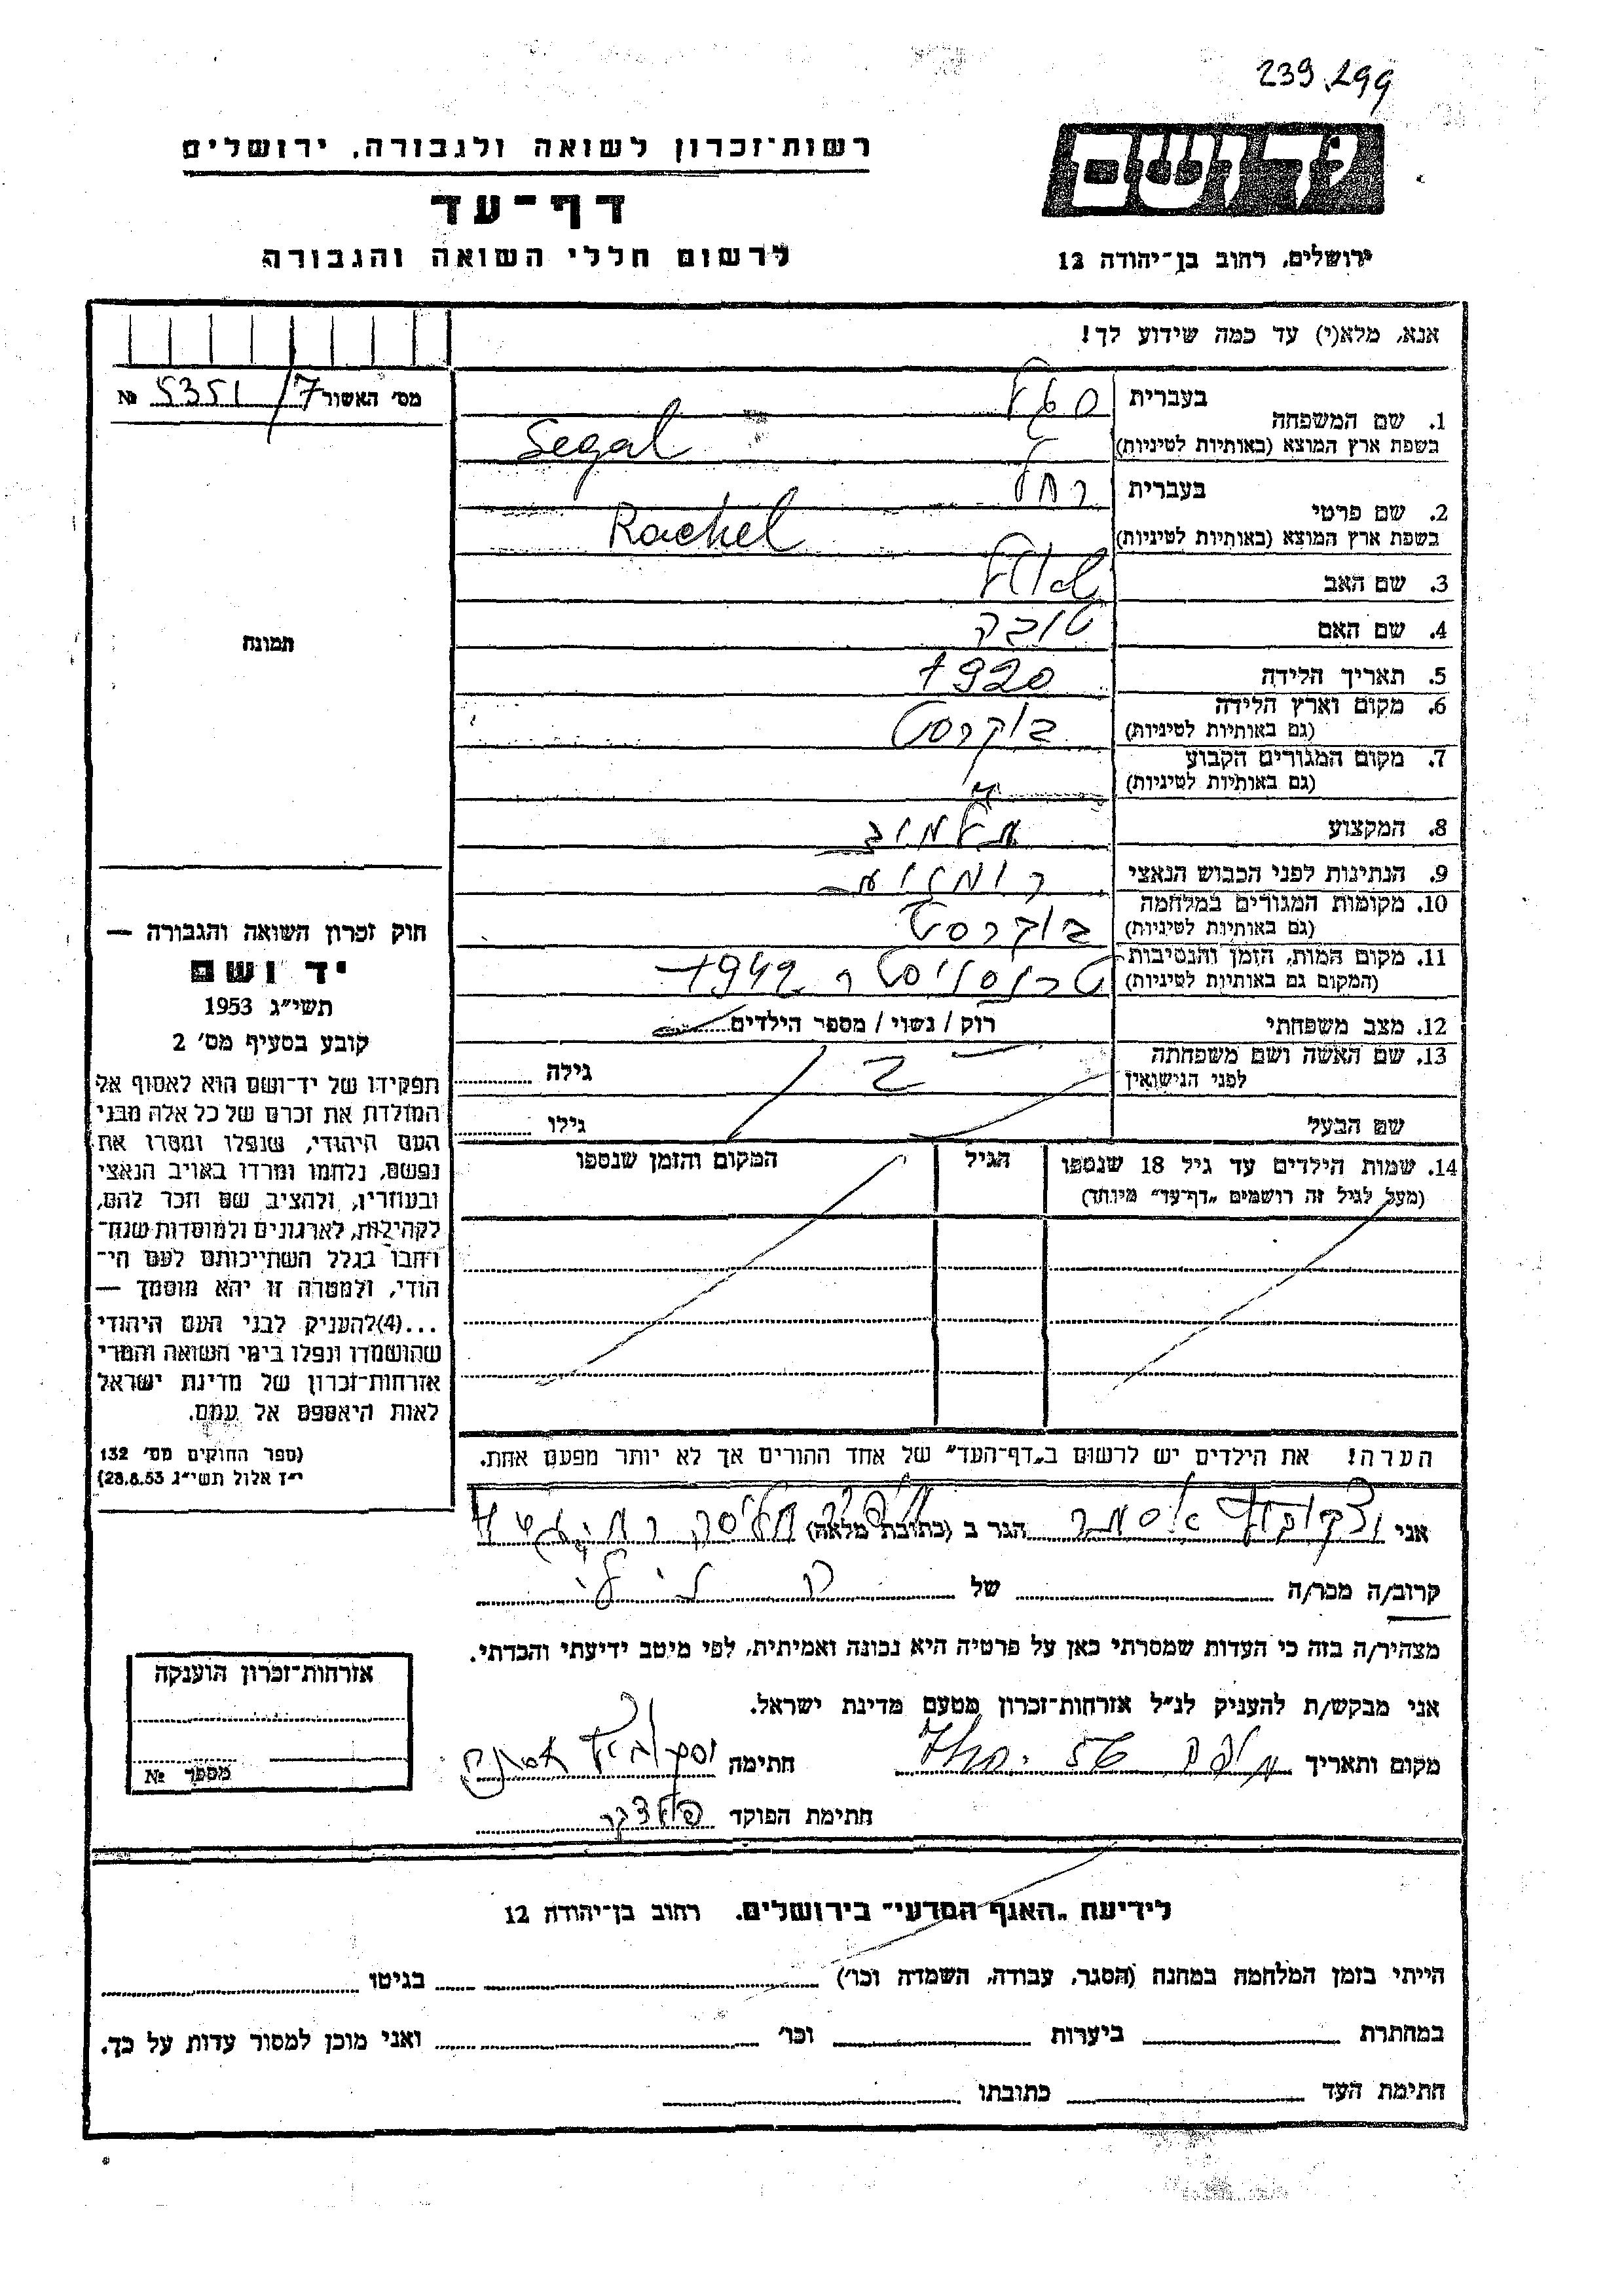 239.299
רשות־זכרון לשואה ולגבורה, ירושלים
דף־עד
לרשום חללי השואה והגבורה
יד ושם
ירושלים, רחוב בן־יהודה 12
אנא, מלא(י) עד כמה שידוע לך!
מס׳ האשור 7/5351 №
תמונה
1. שם המשפחה בעברית סגל
בשפת ארץ המוצא (באותיות לטיניות) Segal
2. שם פרטי בעברית רחל
בשפת ארץ המוצא (באותיות לטיניות) Rachel
3. שם האב שמואל
4. שם האם טובה
5. תאריך הלידה 1920
6. מקום וארץ הלידה (גם באותיות לטיניות) בוקרסט
7. מקום המגורים הקבוע (גם באותיות לטיניות)
8. המקצוע
9. הנתינות לפני הכבוש הנאצי
10. מקומות המגורים במלחמה (גם באותיות לטיניות) בוקרסט
11. מקום המות, הזמן והנסיבות (המקום גם באותיות לטיניות) 1942
12. מצב משפחתי רוק / נשוי / מספר הילדים
13. שם האשה ושם משפחתה לפני הנישואין גילה
שם הבעל גילו
14. שמות הילדים עד גיל 18 שנספו הגיל המקום והזמן שנספו
(מעל לגיל זה רושמים „דף־עד" מיוחד)
הערה! את הילדים יש לרשום ב„דף־העד" של אחד ההורים אך לא יותר מפעם אחת.
חוק זכרון השואה והגבורה —
יד ושם
תשי״ג 1953
קובע בסעיף מס׳ 2
תפקידו של יד־ושם הוא לאסוף אל
המולדת את זכרם של כל אלה מבני
העם היהודי, שנפלו ומסרו את
נפשם, נלחמו ומרדו באויב הנאצי
ובעוזריו, ולהציב שם וזכר להם,
לקהילות, לארגונים ולמוסדות שנח־
רחבו בגלל השתייכותם לעם הי־
הודי, ולמטרה זו יהא מוסמך —
...(4)להעניק לבני העם היהודי
שהושמדו ונפלו בימי השואה והמרי
אזרחות־זכרון של מדינת ישראל
לאות היאספם אל עמם.
(ספר החוקים מס׳ 132
י״ז אלול תשי״ג 28.8.53)
אני אסתר הגר ב (כתובת מלאה)
קרוב/ה מכר/ה של
מצהיר/ה בזה כי העדות שמסרתי כאן על פרטיה היא נכונה ואמיתית, לפי מיטב ידיעתי והכרתי.
אני מבקש/ת להעניק לנ״ל אזרחות־זכרון מטעם מדינת ישראל.
מקום ותאריך חתימה
חתימת הפוקד
אזרחות־זכרון הוענקה
מספר №
לידיעת „האגף המדעי" בירושלים. רחוב בן־יהודה 12
הייתי בזמן המלחמה במחנה (הסגר, עבודה, השמדה וכו׳) בגיטו
במחתרת ביערות וכו׳ ואני מוכן למסור עדות על כך.
חתימת העד כתובתו